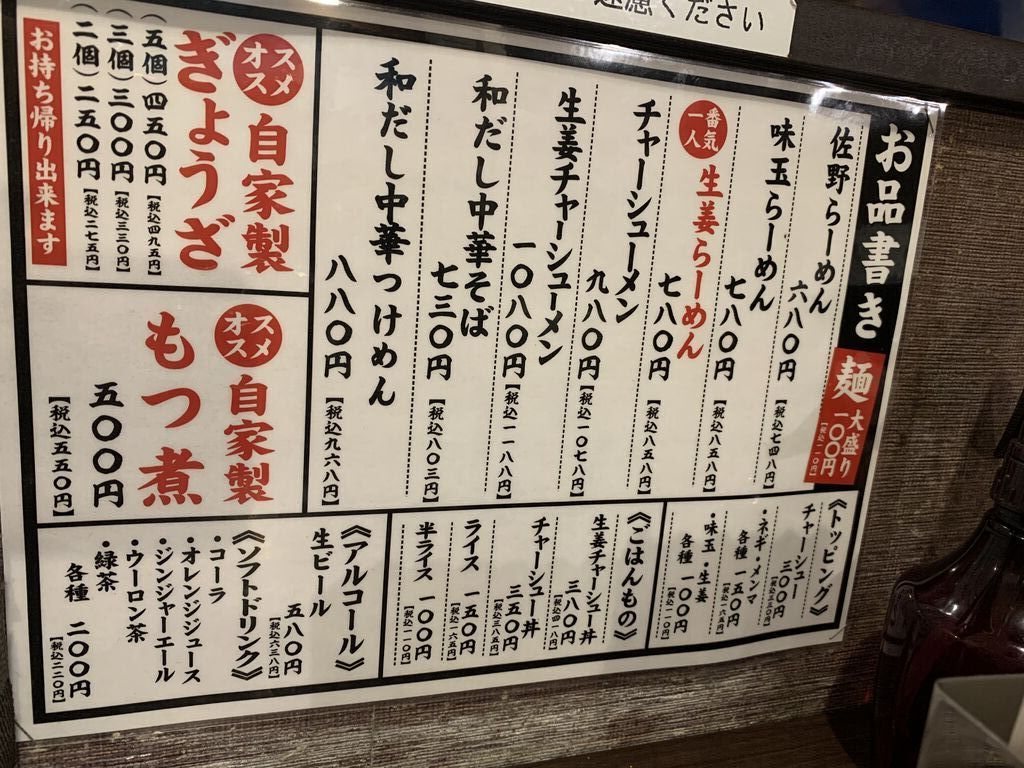 遠慮ください
お品書き
麺
大盛り
一〇〇円
【税込一一〇円】
佐野らーめん
六八〇円
【税込七四八円】
味玉らーめん
七八〇円
【税込八五八円】
一番人気
生姜らーめん
七八〇円
【税込八五八円】
チャーシューメン
九八〇円
【税込一〇七八円】
生姜チャーシューメン
一〇八〇円
【税込一一八八円】
和だし中華そば
七三〇円
【税込八〇三円】
和だし中華つけめん
八八〇円
【税込九六八円】
オススメ
自家製
ぎょうざ
（五個）四五〇円【税込四九五円】
（三個）三〇〇円【税込三三〇円】
（二個）二五〇円【税込二七五円】
お持ち帰り出来ます
オススメ
自家製
もつ煮
五〇〇円
【税込五五〇円】
《トッピング》
チャーシュー
三〇〇円
【税込三三〇円】
・ネギ・メンマ
各種 一五〇円
【税込一六五円】
・味玉・生姜
各種 一〇〇円
【税込一一〇円】
《ごはんもの》
生姜チャーシュー丼
三八〇円
【税込四一八円】
チャーシュー丼
三五〇円
【税込三八五円】
ライス 一五〇円
【税込一六五円】
半ライス 一〇〇円
【税込一一〇円】
《アルコール》
生ビール
五八〇円
【税込六三八円】
《ソフトドリンク》
・コーラ
・オレンジジュース
・ジンジャーエール
・ウーロン茶
・緑茶
各種 二〇〇円
【税込二二〇円】